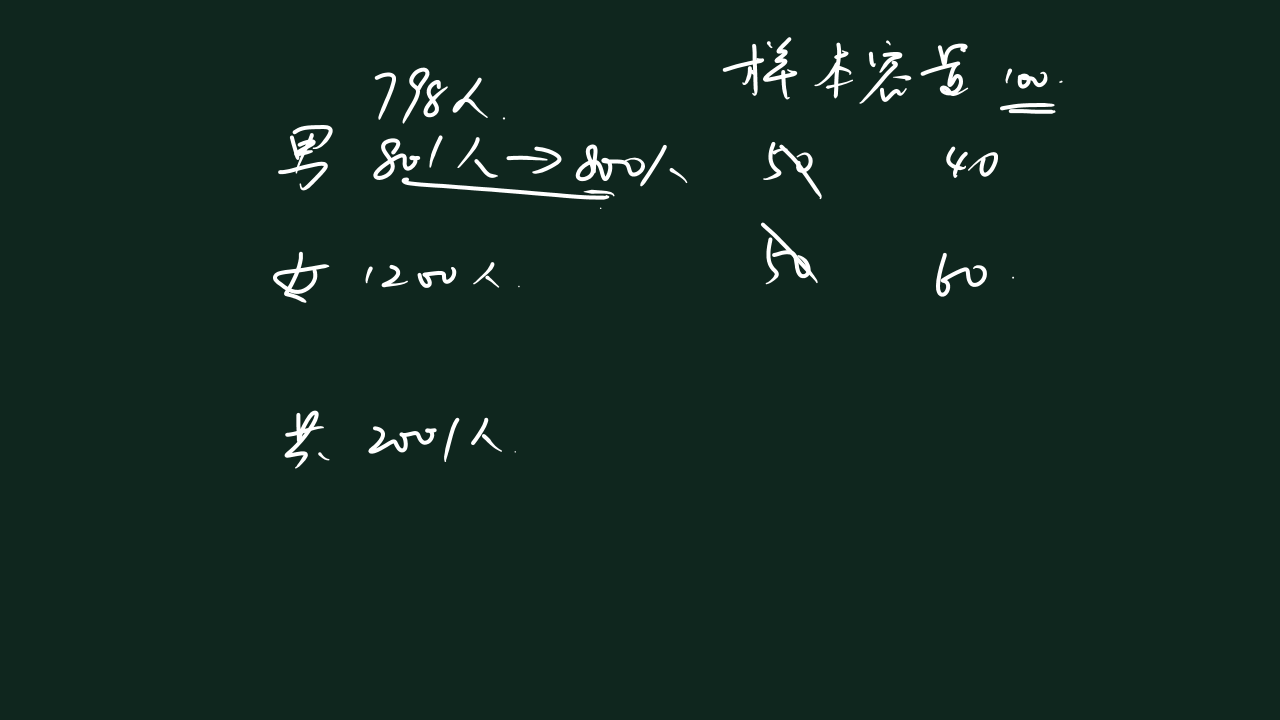 样本容量 100.
798人.
男 801人→800人 50 40
女 1200人. 50 60.
共 2001人.